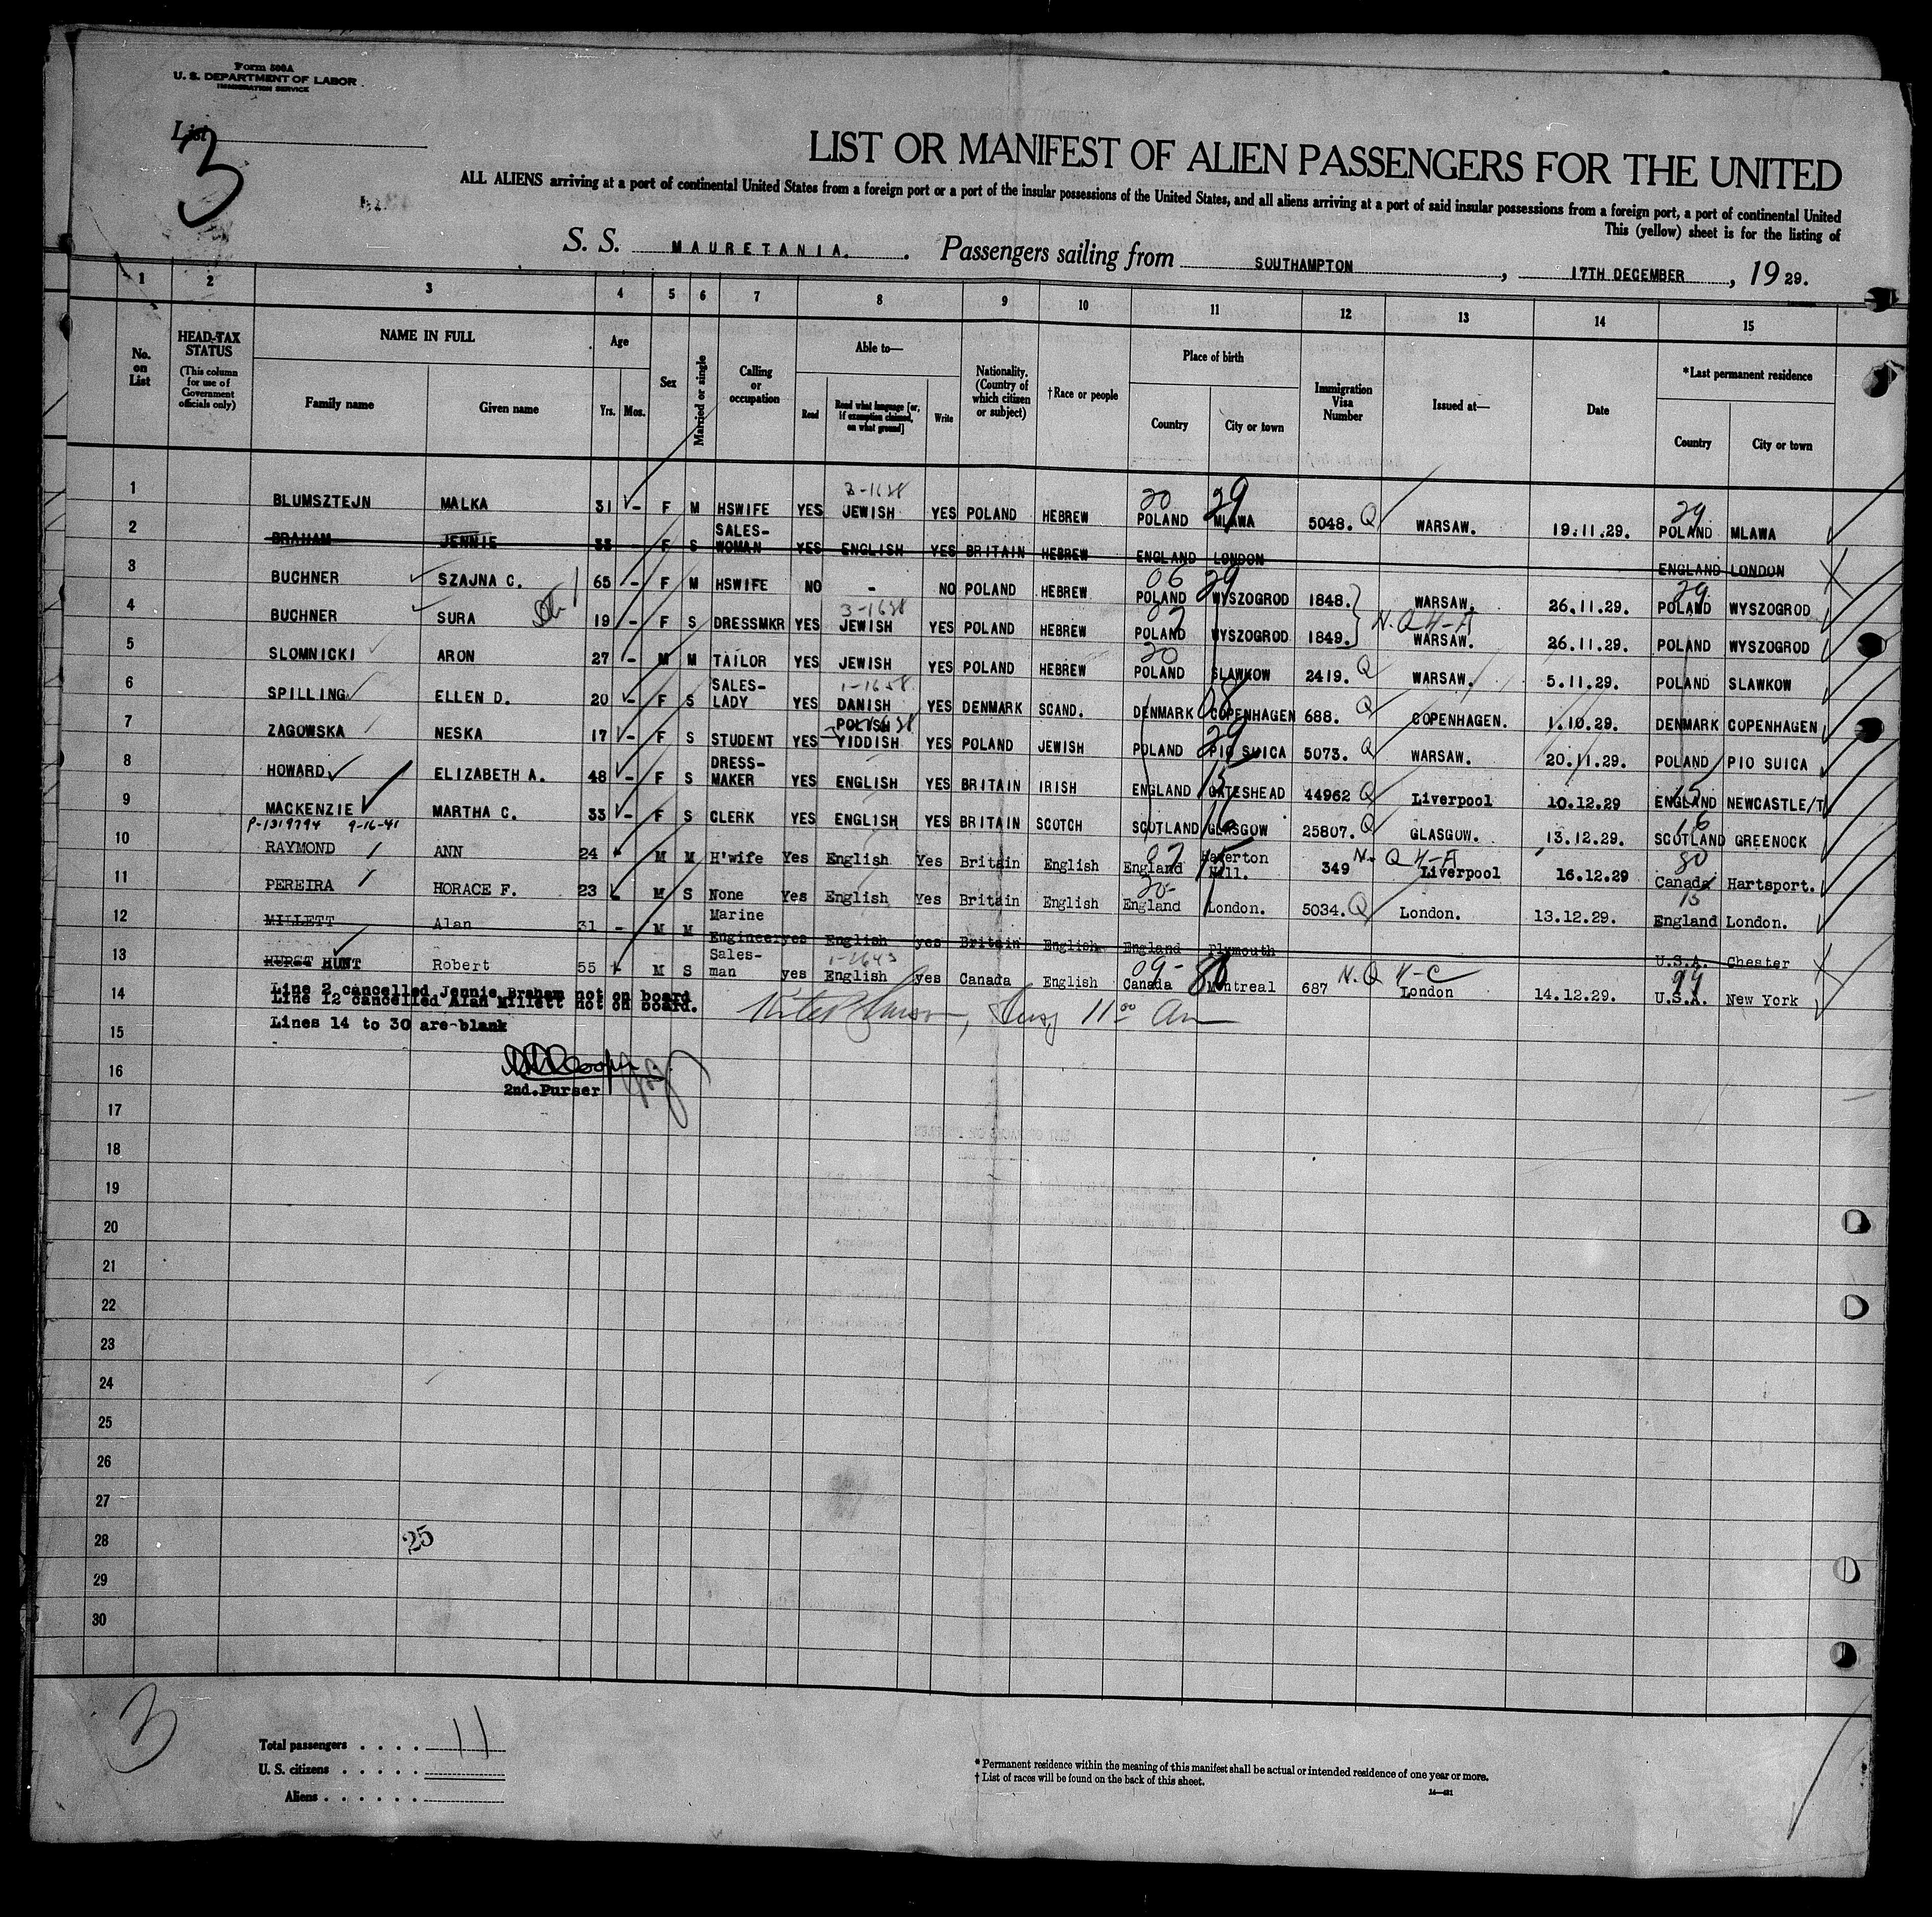 Form 500A
U. S. DEPARTMENT OF LABOR
IMMIGRATION SERVICE
List
3
LIST OR MANIFEST OF ALIEN PASSENGERS FOR THE UNITED
ALL ALIENS arriving at a port of continental United States from a foreign port or a port of the insular possessions of the United States, and all aliens arriving at a port of said insular possessions from a foreign port, a port of continental United
This (yellow) sheet is for the listing of
S. S. MAURETANIA. Passengers sailing from SOUTHAMPTON, 17TH DECEMBER, 1929.
1 2 3 4 5 6 7 8 9 10 11 12 13 14 15
No. on List
HEAD-TAX STATUS (This column for use of Government officials only)
NAME IN FULL
Family name Given name
Age
Yrs. Mos.
Sex
Married or single
Calling or occupation
Able to—
Read Read what language [or, if exemption claimed, on what ground] Write
Nationality. (Country of which citizen or subject)
†Race or people
Place of birth
Country City or town
Immigration Visa Number
Issued at—
Date
*Last permanent residence
Country City or town
1 BLUMSZTEJN MALKA 31 - F M HSWIFE YES JEWISH YES POLAND HEBREW POLAND MLAWA 5048. Q WARSAW. 19.11.29. POLAND MLAWA
2 BRAHAM JENNIE 33 - F S SALES-WOMAN YES ENGLISH YES BRITAIN HEBREW ENGLAND LONDON ENGLAND LONDON
3 BUCHNER SZAJNA C. 65 - F M HSWIFE NO - NO POLAND HEBREW POLAND WYSZOGROD 1848. WARSAW. 26.11.29. POLAND WYSZOGROD
4 BUCHNER SURA 19 - F S DRESSMKR YES JEWISH YES POLAND HEBREW POLAND WYSZOGROD 1849. N.Q 4-A WARSAW. 26.11.29. POLAND WYSZOGROD
5 SLOMNICKI ARON 27 - M M TAILOR YES JEWISH YES POLAND HEBREW POLAND SLAWKOW 2419. Q WARSAW. 5.11.29. POLAND SLAWKOW
6 SPILLING ELLEN D. 20 - F S SALES-LADY YES DANISH YES DENMARK SCAND. DENMARK COPENHAGEN 688. Q COPENHAGEN. 1.10.29. DENMARK COPENHAGEN
7 ZAGOWSKA NESKA 17 - F S STUDENT YES POLISH YIDDISH YES POLAND JEWISH POLAND PIO SUICA 5073. Q WARSAW. 20.11.29. POLAND PIO SUICA
8 HOWARD ELIZABETH A. 48 - F S DRESS-MAKER YES ENGLISH YES BRITAIN IRISH ENGLAND GATESHEAD 44962 Q Liverpool 10.12.29 ENGLAND NEWCASTLE/T
9 MACKENZIE MARTHA C. 33 - F S CLERK YES ENGLISH YES BRITAIN SCOTCH SCOTLAND GLASGOW 25807. Q GLASGOW. 13.12.29. SCOTLAND GREENOCK
P-1319794 9-16-41
10 RAYMOND ANN 24 M M H'wife Yes English Yes Britain English England Haverton Hill. 349 N. Q 4-A Liverpool 16.12.29 Canada Hartsport.
11 PEREIRA HORACE F. 23 M S None Yes English Yes Britain English England London. 5034. Q London. 13.12.29. England London.
12 MILLETT Alan 31 - M M Marine Engineer yes English yes Britain English England Plymouth U.S.A. Chester
13 HURST HUNT Robert 55 M S Sales-man yes English yes Canada English Canada Montreal 687 N.Q 4-C London 14.12.29. U.S.A. New York
14 Line 2 cancelled Jennie Braham not on board
Line 12 cancelled Alan Millett not on board.
15 Lines 14 to 30 are blank
16
2nd.Purser
17
18
19
20
21
22
23
24
25
26
27
28
25
29
30
3
Total passengers . . . . 11
U. S. citizens . . . . .
Aliens . . . . . .
* Permanent residence within the meaning of this manifest shall be actual or intended residence of one year or more.
† List of races will be found on the back of this sheet.